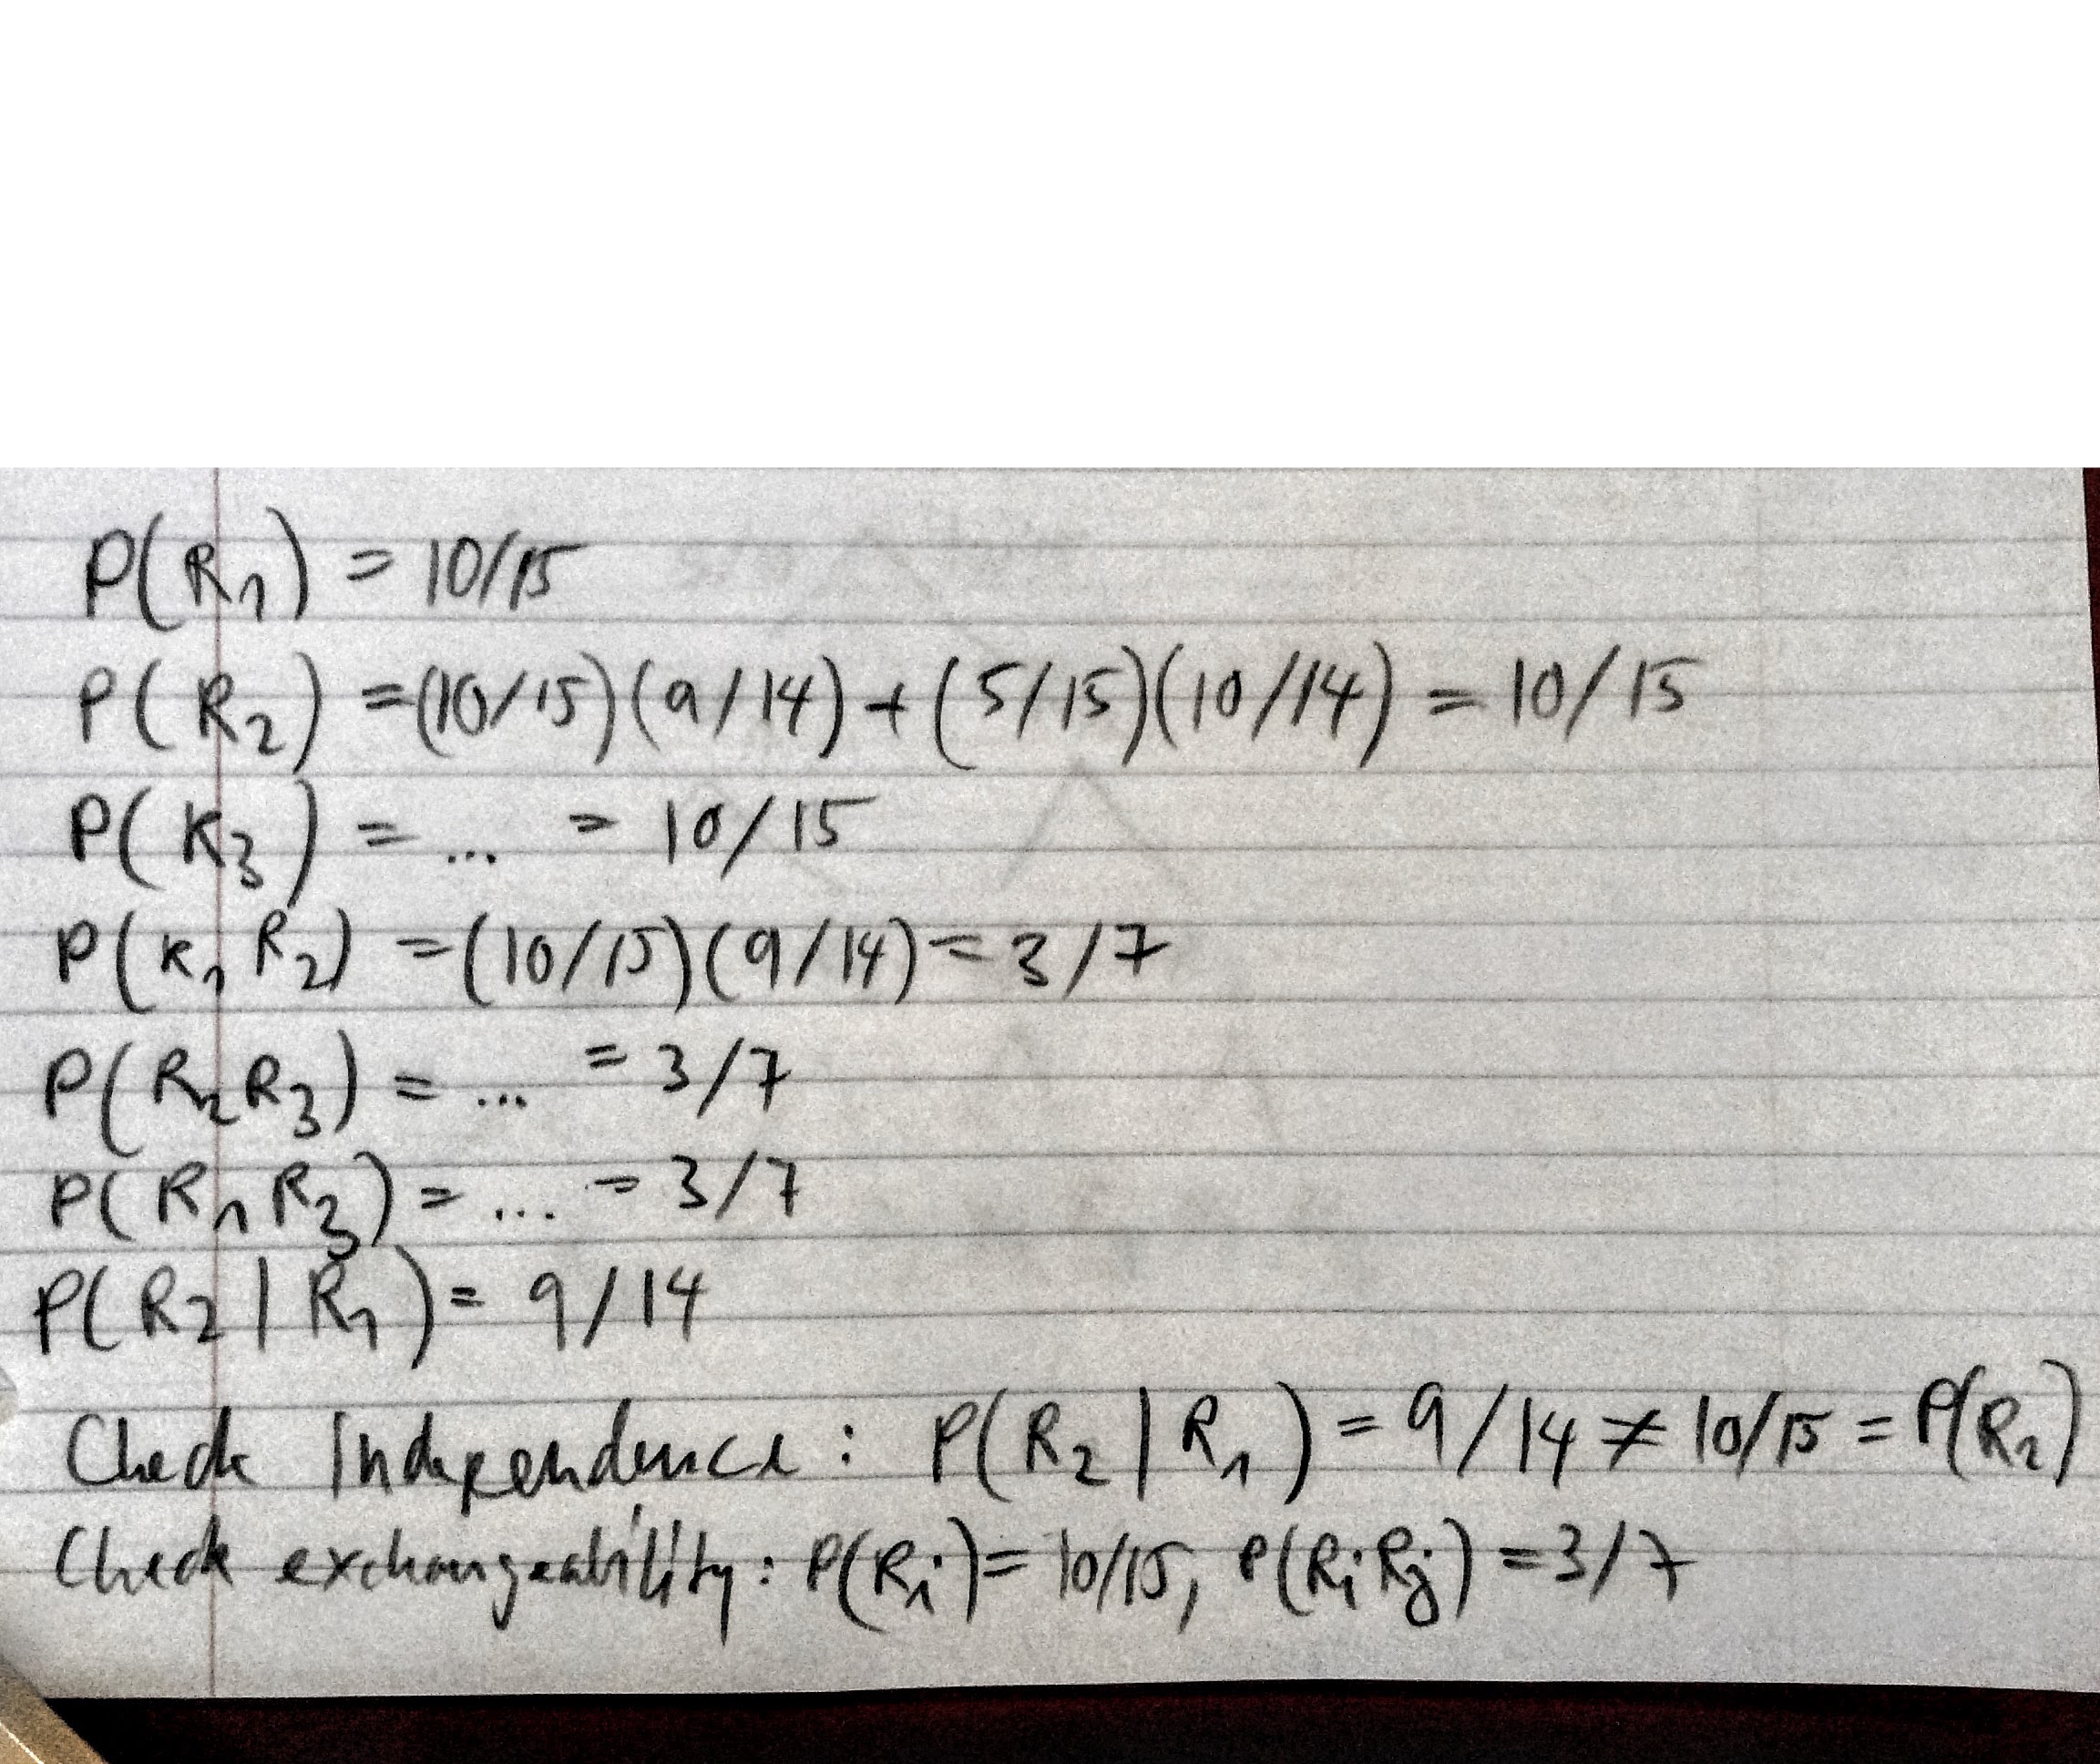 P(R₁) = 10/15
P(R₂) = (10/15)(9/14) + (5/15)(10/14) = 10/15
P(R₃) = ... = 10/15
P(R₁R₂) = (10/15)(9/14) = 3/7
P(R₂R₃) = ... = 3/7
P(R₁R₃) = ... = 3/7
P(R₂|R₁) = 9/14
Check Independence: P(R₂|R₁) = 9/14 ≠ 10/15 = P(R₂)
Check exchangeability: P(Rᵢ) = 10/15, P(RᵢRⱼ) = 3/7